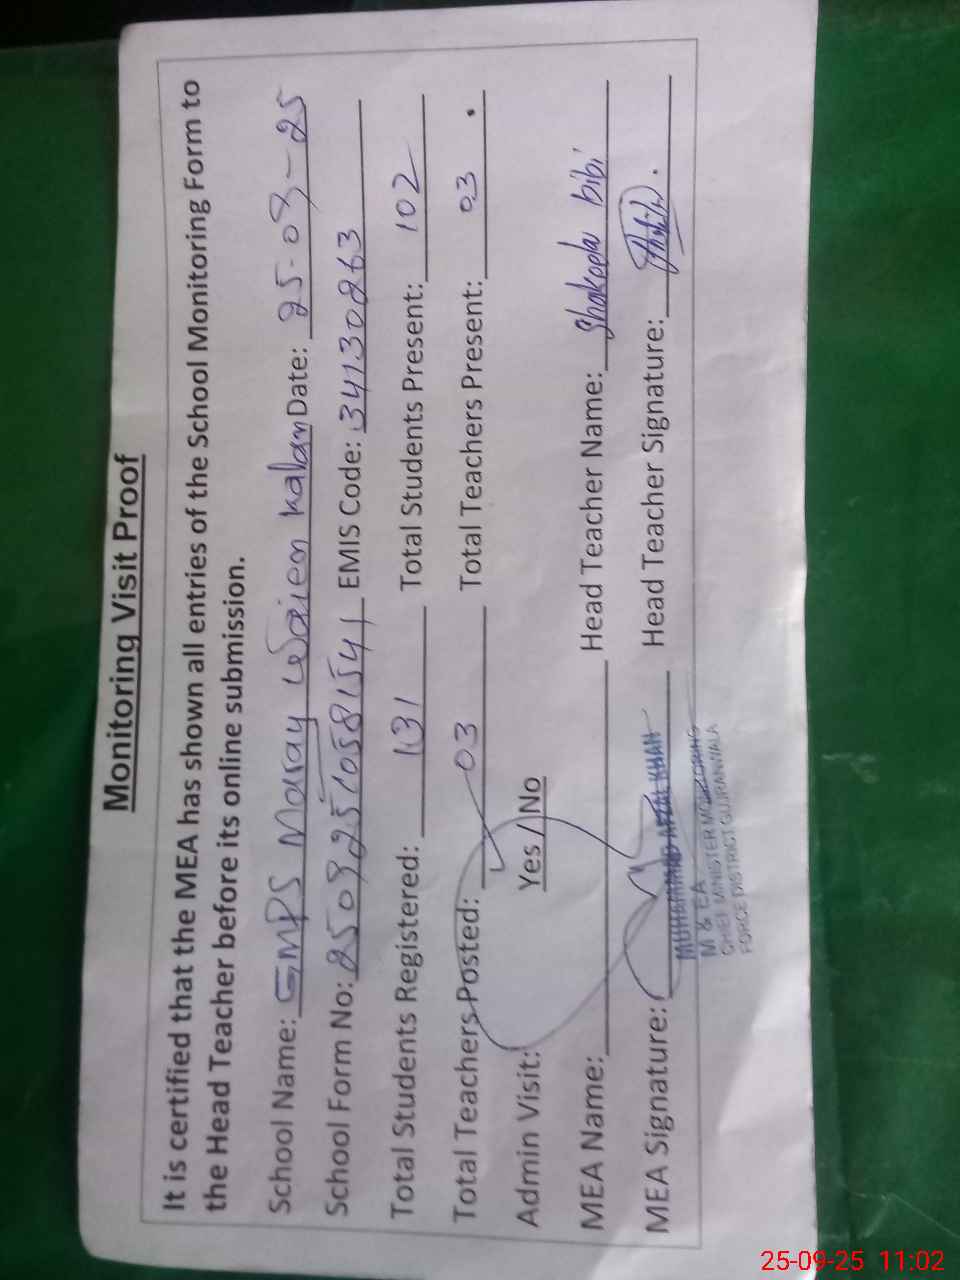 Monitoring Visit Proof
It is certified that the MEA has shown all entries of the School Monitoring Form to
the Head Teacher before its online submission.
School Name: GMPS Maray Kalan Date: 25-09-25
School Form No: 25092510581541 EMIS Code: 34130263
Total Students Registered: 131 Total Students Present: 102
Total Teachers Posted: 03 Total Teachers Present: 03
Admin Visit: Yes / No
MEA Name: Head Teacher Name: Shakeela bibi
MEA Signature: Head Teacher Signature:
MUHAMMAD AFZAL KHAN
M & EA
CHIEF MINISTER MONITORING
FORCE DISTRICT GUJRANWALA
25-09-25 11:02